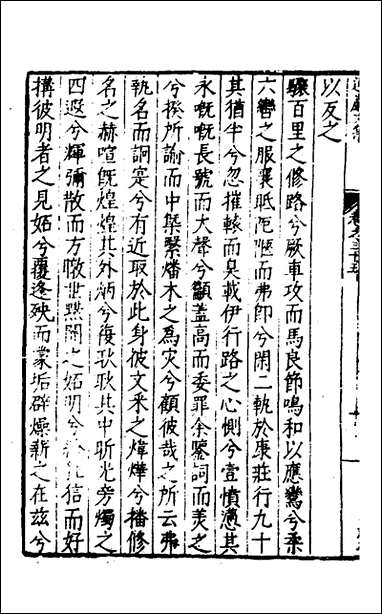 以反之
驟百里之修路兮厥車攻而馬良節鳴和以應鸞兮柔
六轡之服襄眂阨陋而弗即兮閑二執於康莊行九十
其猶半兮忽摧轅而臭載伊行路之心惻兮壹憤懣其
永嘅嘅長號而大聲兮顧蓋高而委罪余鑒詞而羙之
兮揆所諭而中㮣繄燔木之為灾兮顧彼哉之所云弗
執名而詗寔兮有近取於此身彼文釆之煒燁兮播修
名之赫喧旣煌煌其外炳兮復耿耿其中昕光旁燭之
四遐兮輝彌散而方暾世黙闇之妬明兮 信而好
搆彼明者之見妬兮罹逢殃而蒙垢辟燥薪之在茲兮